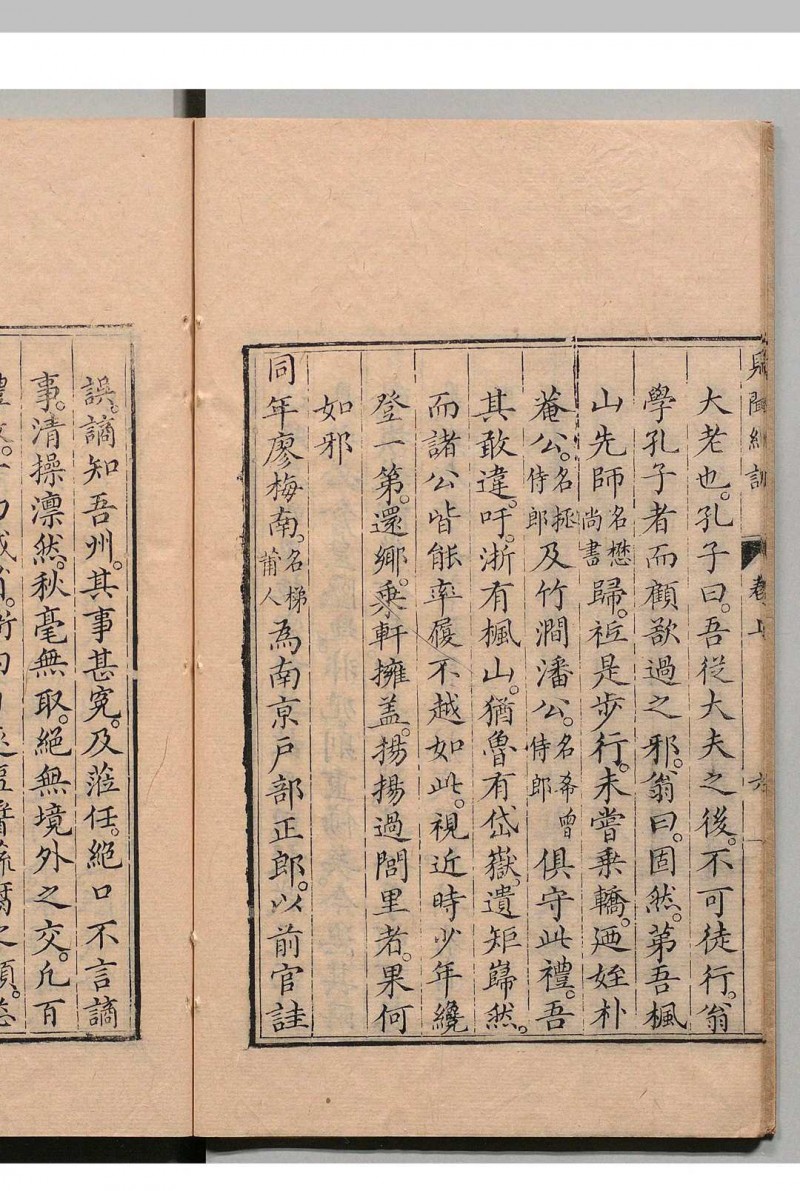 見聞紀訓 卷上 六
大老也。孔子曰。吾從大夫之後。不可徒行。翁
學孔子者。而顧欲過之邪。翁曰。固然。第吾楓
山先師名懋尚書歸。祗是步行。未嘗乘轎。迺姪朴
菴公。名拯侍郎及竹澗潘公。名希曾侍郎俱守此禮。吾
其敢違。吁。浙有楓山。猶魯有岱嶽。遺矩巋然。
而諸公皆能率履不越如此。視近時少年纔
登一第。還鄉。乘軒擁蓋。揚揚過閭里者。果何
如邪
同年廖梅南。名梯莆人為南京戶部正郎。以前官詿
誤。謫知吾州。其事甚冤。及蒞任。絕口不言謫
事。清操凛然。秋毫無取。絕無境外之交。凡百